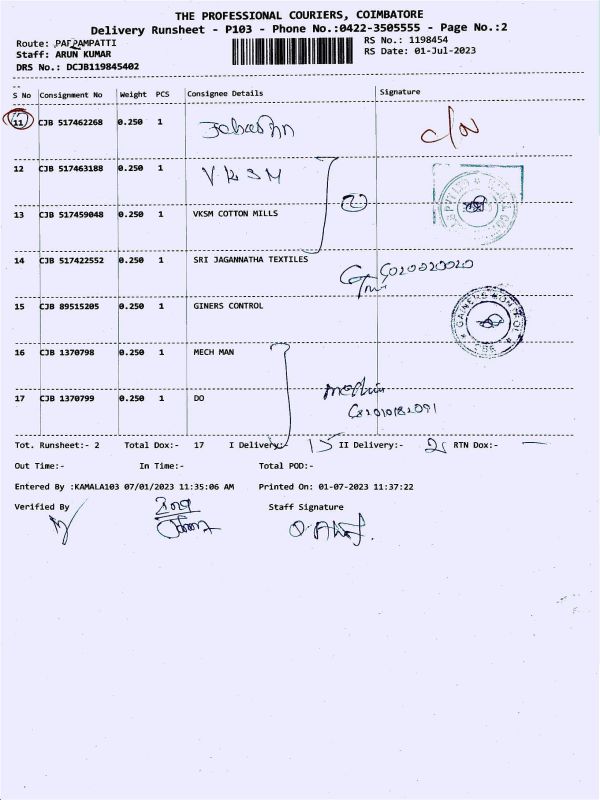 THE PROFESSIONAL COURIERS, COIMBATORE
Delivery Runsheet - P103 - Phone No.:0422-3505555 - Page No.:2
Route: PAPPAMPATTI RS No.: 1198454
Staff: ARUN KUMAR RS Date: 01-Jul-2023
DRS No.: DCJB119845402
S No Consignment No Weight PCS Consignee Details Signature
11 CJB 517462268 0.250 1
12 CJB 517463188 0.250 1 VKSM
13 CJB 517459048 0.250 1 VKSM COTTON MILLS
14 CJB 517422552 0.250 1 SRI JAGANNATHA TEXTILES
15 CJB 89515205 0.250 1 GINERS CONTROL
GAINERS CONTROL
16 CJB 1370798 0.250 1 MECH MAN
17 CJB 1370799 0.250 1 DO
Tot. Runsheet:- 2 Total Dox:- 17 I Delivery:- 15 II Delivery:- 2 RTN Dox:- —
Out Time:- In Time:- Total POD:-
Entered By :KAMALA103 07/01/2023 11:35:06 AM Printed On: 01-07-2023 11:37:22
Verified By Staff Signature